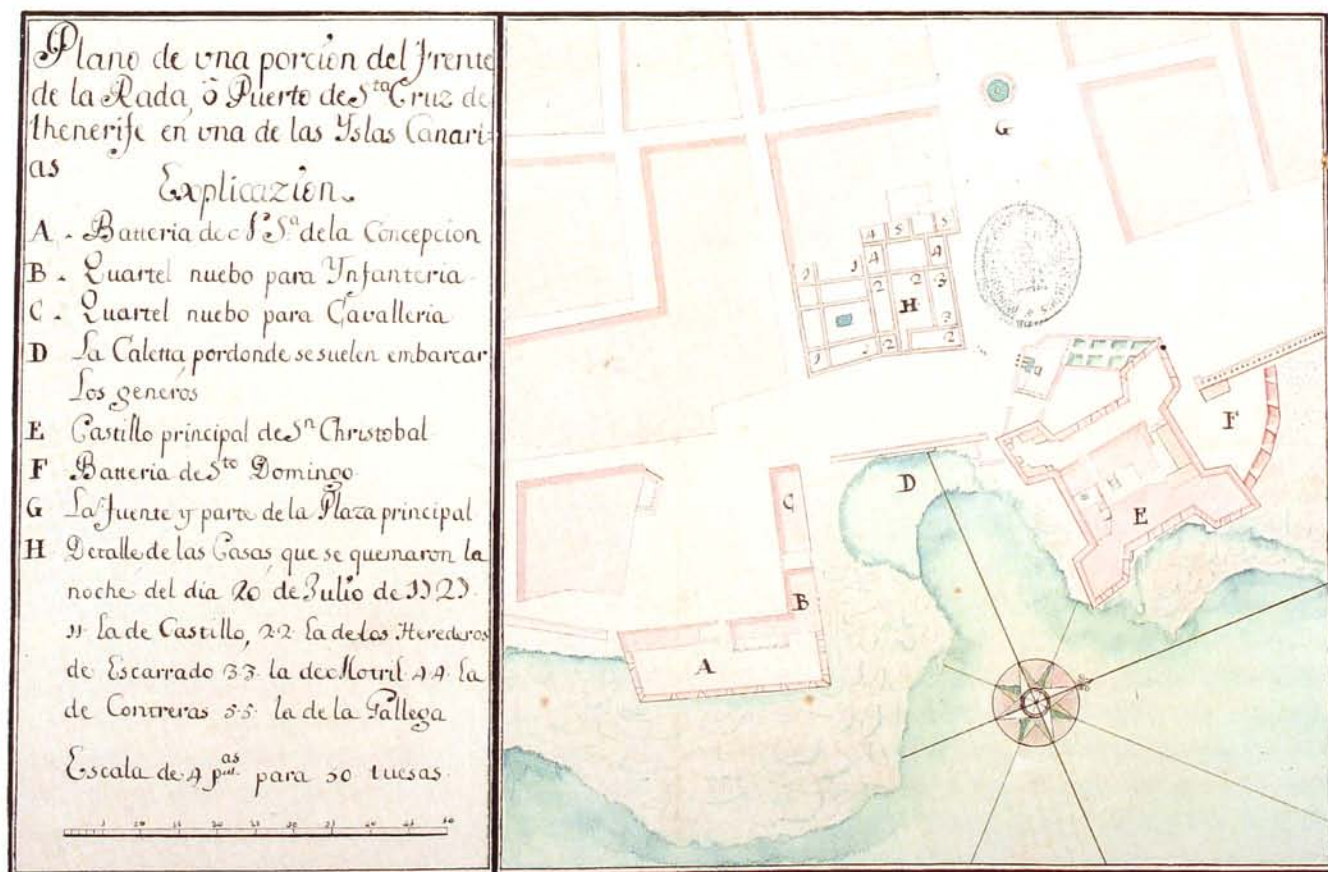 Plano de vna porcion del frente
de la Rada, ô Puerto de Sta Cruz de
thenerife en vna de las Yslas Canari=
as
Explicazion.
A . Batteria de N S.a de la Concepcion
B . Quartel nuebo para Ynfanteria
C . Quartel nuebo para Cavalleria
D La Caletta pordonde se suelen embarcar
Los generos
E Castillo principal de Sn Christobal
F Batteria de Sto Domingo
G La fuente y parte de la Plaza principal
H Detalle de las Casas que se quemaron la
noche del dia 20 de Julio de 1727.
11. La de Castillo, 22 La de los Herederos
de Escarrado 33. la de Motril 44. La
de Contreras 55. la de la Gallega
Escala de 4 para 50 tuesas.
5 10 15 20 25 30 35 40 45 50
G
4 5 5
1 1 4 4
2 2 3
H
3
1 1 2 2
D
F
C
E
B
A